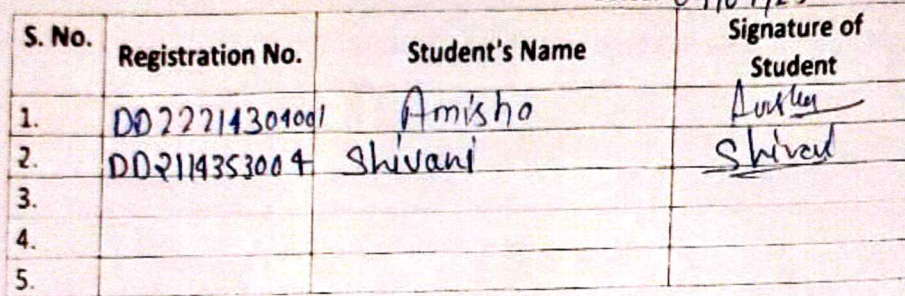 S. No. Registration No. Student's Name Signature of Student
1. DD222114304001 Amisha
2. DD2114353004 Shivani
3.
4.
5.